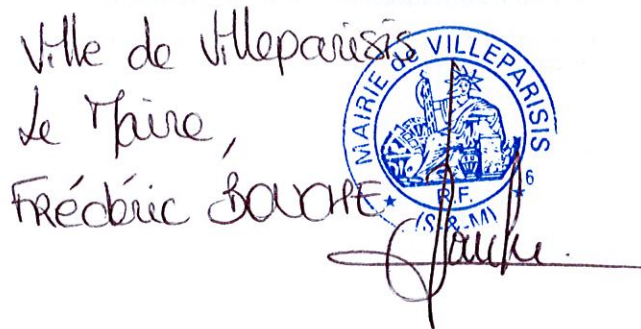 Ville de Villeparisis
Le Maire,
Frédéric BOUCHE
MAIRIE de VILLEPARISIS
6
R.F.
(S.-&-M)
Bouche